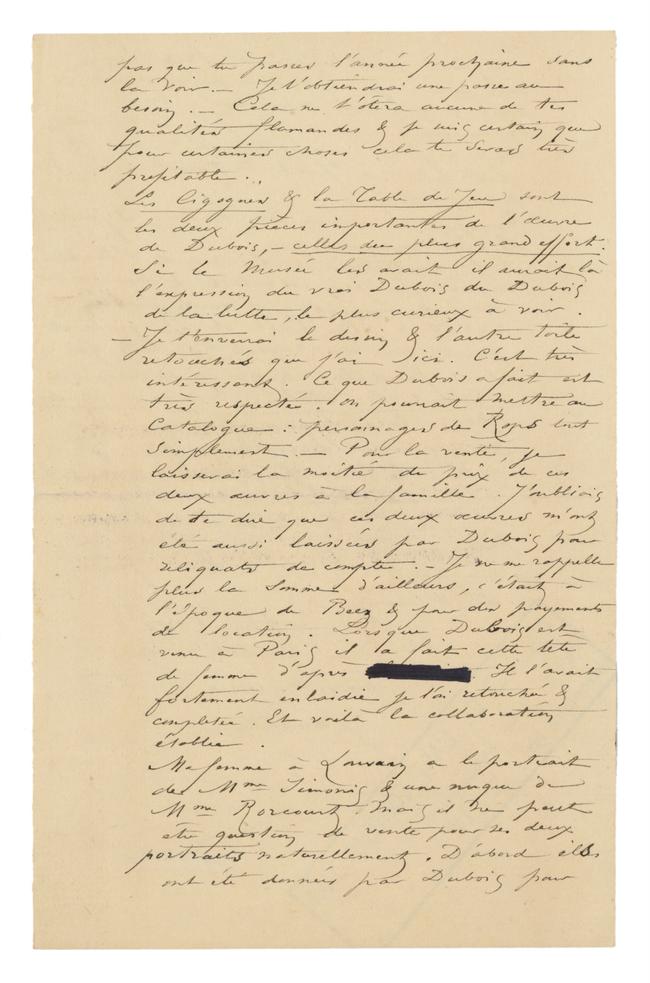 pas que tu passes l'année prochaine sans
la voir. — Je t'obtiendrai une passe au
besoin. — Cela ne t'ôtera aucune de tes
qualités flamandes & je suis certain que
pour certaines choses cela te serais très
profitable...
Les Cigognes & la Table de Jeu sont
les deux pièces importantes de l'œuvre
de Dubois, — celles du plus grand effort.
Si le Musée les avait il aurait là
l'expression du vrai Dubois du Dubois
de la lutte, le plus curieux à voir.
— Je t'enverrai le dessin & l'autre toile
retouchés que j'ai ici. C'est très
intéressant. Ce que Dubois a fait est
très respecté. On pourrait mettre au
Catalogue : personnages de Rops tout
simplement. — Pour la vente, je
laisserai la moitié du prix de ces
deux œuvres à la famille. J'oubliais
de te dire que ces deux œuvres m'ont
été aussi laissées par Dubois pour
reliquats de compte. — Je ne me rappelle
plus la somme d'ailleurs, c'était à
l'époque de Beez & pour des payements
de location. Lorsque Dubois est
venu à Paris il a fait cette tête
de femme d'après Il l'avait
fortement enlaidie je l'ai retouchée &
completée. Et voilà la collaboration
établie.
Ma femme à Louvain a le portrait
de Mme Simonis & une nuque de
Mme Rorcourt. Mais il ne peut
être question de vente pour ses deux
portraits naturellement. D'abord ells
ont été données par Dubois pour